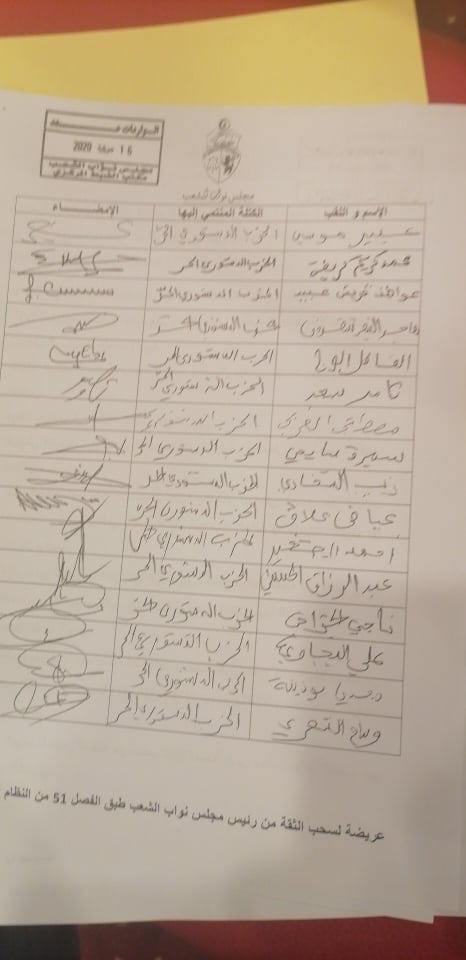 الواردات
16 2020
مجلس نواب الشعب
مكتب الضبط المركزي
مجلس نواب الشعب
الاسم و اللقب الكتلة المنتمي إليها الإمضاء
عبير موسي الحزب الدستوري الحر
محمد كريم كريفة الحزب الدستوري الحر
عواطف قريش عبيد الحزب الدستوري الحر
حزب الدستوري الحر
الحزب الدستوري الحر
ثامر سعد الحزب الدستوري الحر
مصطفى الحزب الدستوري
سميرة سايحي الحزب الدستوري الحر
زينب السفاري الحزب الدستوري الحر
عياض علاق الحزب الدستوري الحر
احمد الصغير الحزب الدستوري الحر
عبد الرزاق الحزب الدستوري الحر
ناجي الحزب الدستوري الحر
علي البجاوي الحزب الدستوري الحر
نسريا بودينة الحزب الدستوري الحر
وسام الشعري الحزب الدستوري الحر
عريضة لسحب الثقة من رئيس مجلس نواب الشعب طبق الفصل 51 من النظام